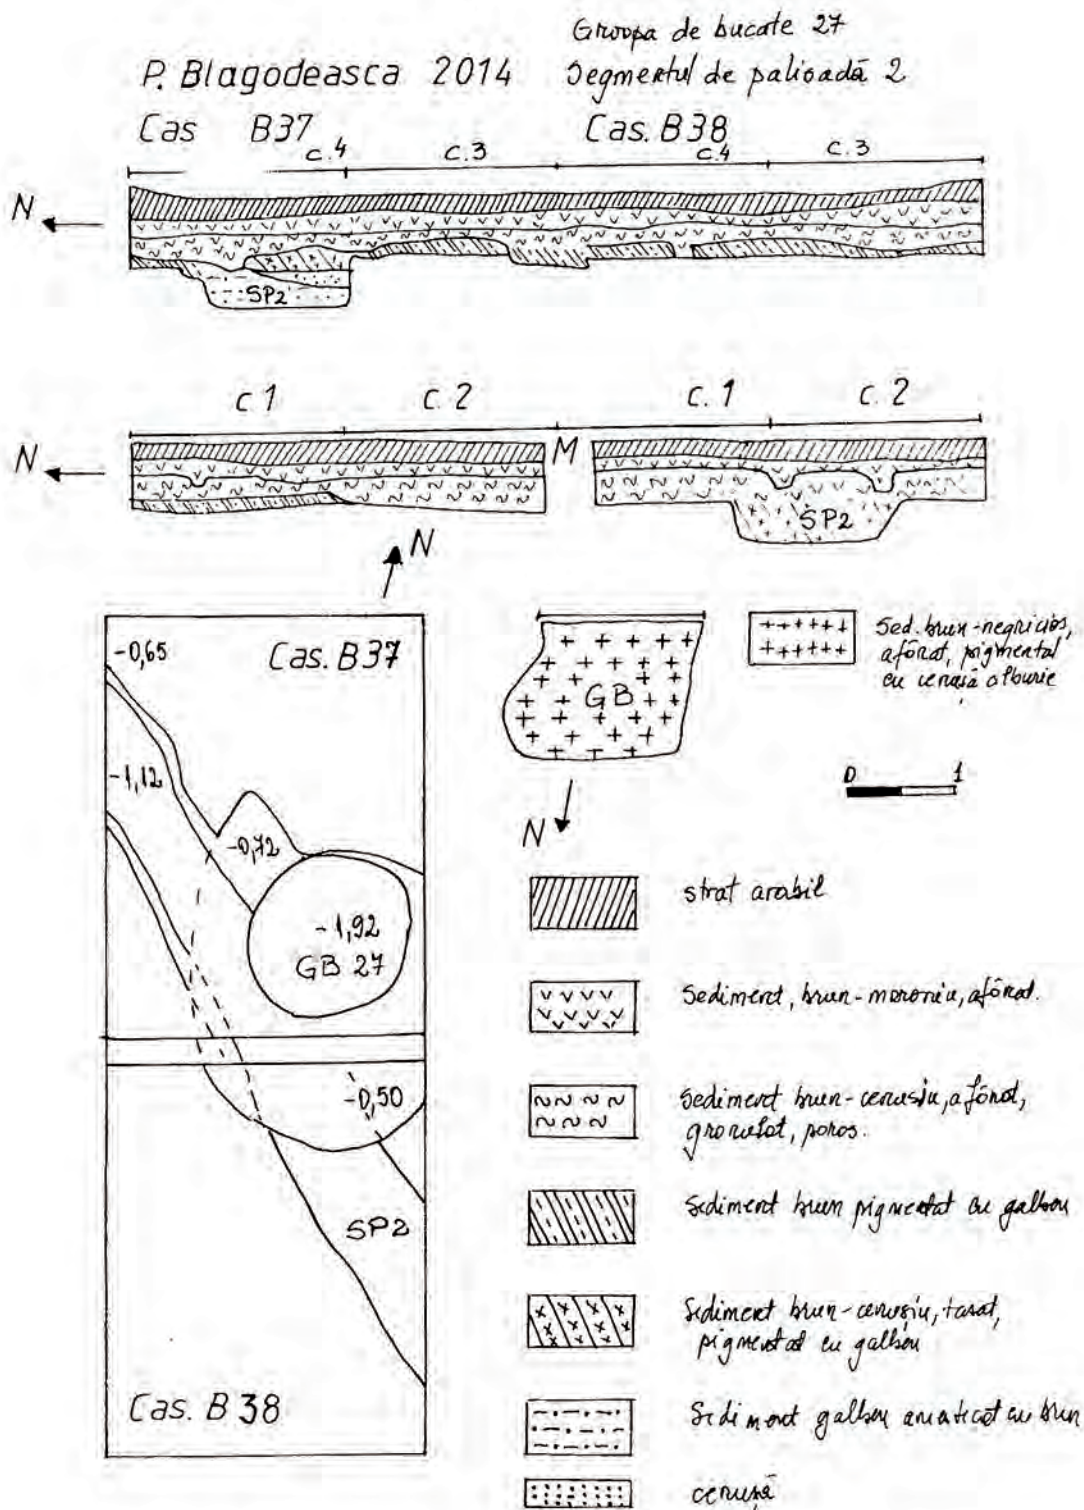 Groapa de bucate 27
P. Blagodeasca 2014
Segmentul de palisadă 2
Cas B37
Cas. B38
c.4
c.3
c.4
c.3
N
SP2
c.1
c.2
c.1
c.2
N
M
SP2
N
-0,65
Cas. B37
-1,12
-0,72
-1,92
GB 27
-0,50
SP2
Cas. B 38
GB
N
Sed. brun-negricios,
afânat, pigmentat
cu cenușă alburie
0 1
strat arabil
Sediment, brun-maroniu, afânat.
Sediment brun-cenusiu, afânat,
granulat, poros.
Sediment brun pigmentat cu galben
Sediment brun-cenușiu, tasat,
pigmentat cu galben
Sediment galben amesticat cu brun
cenușă